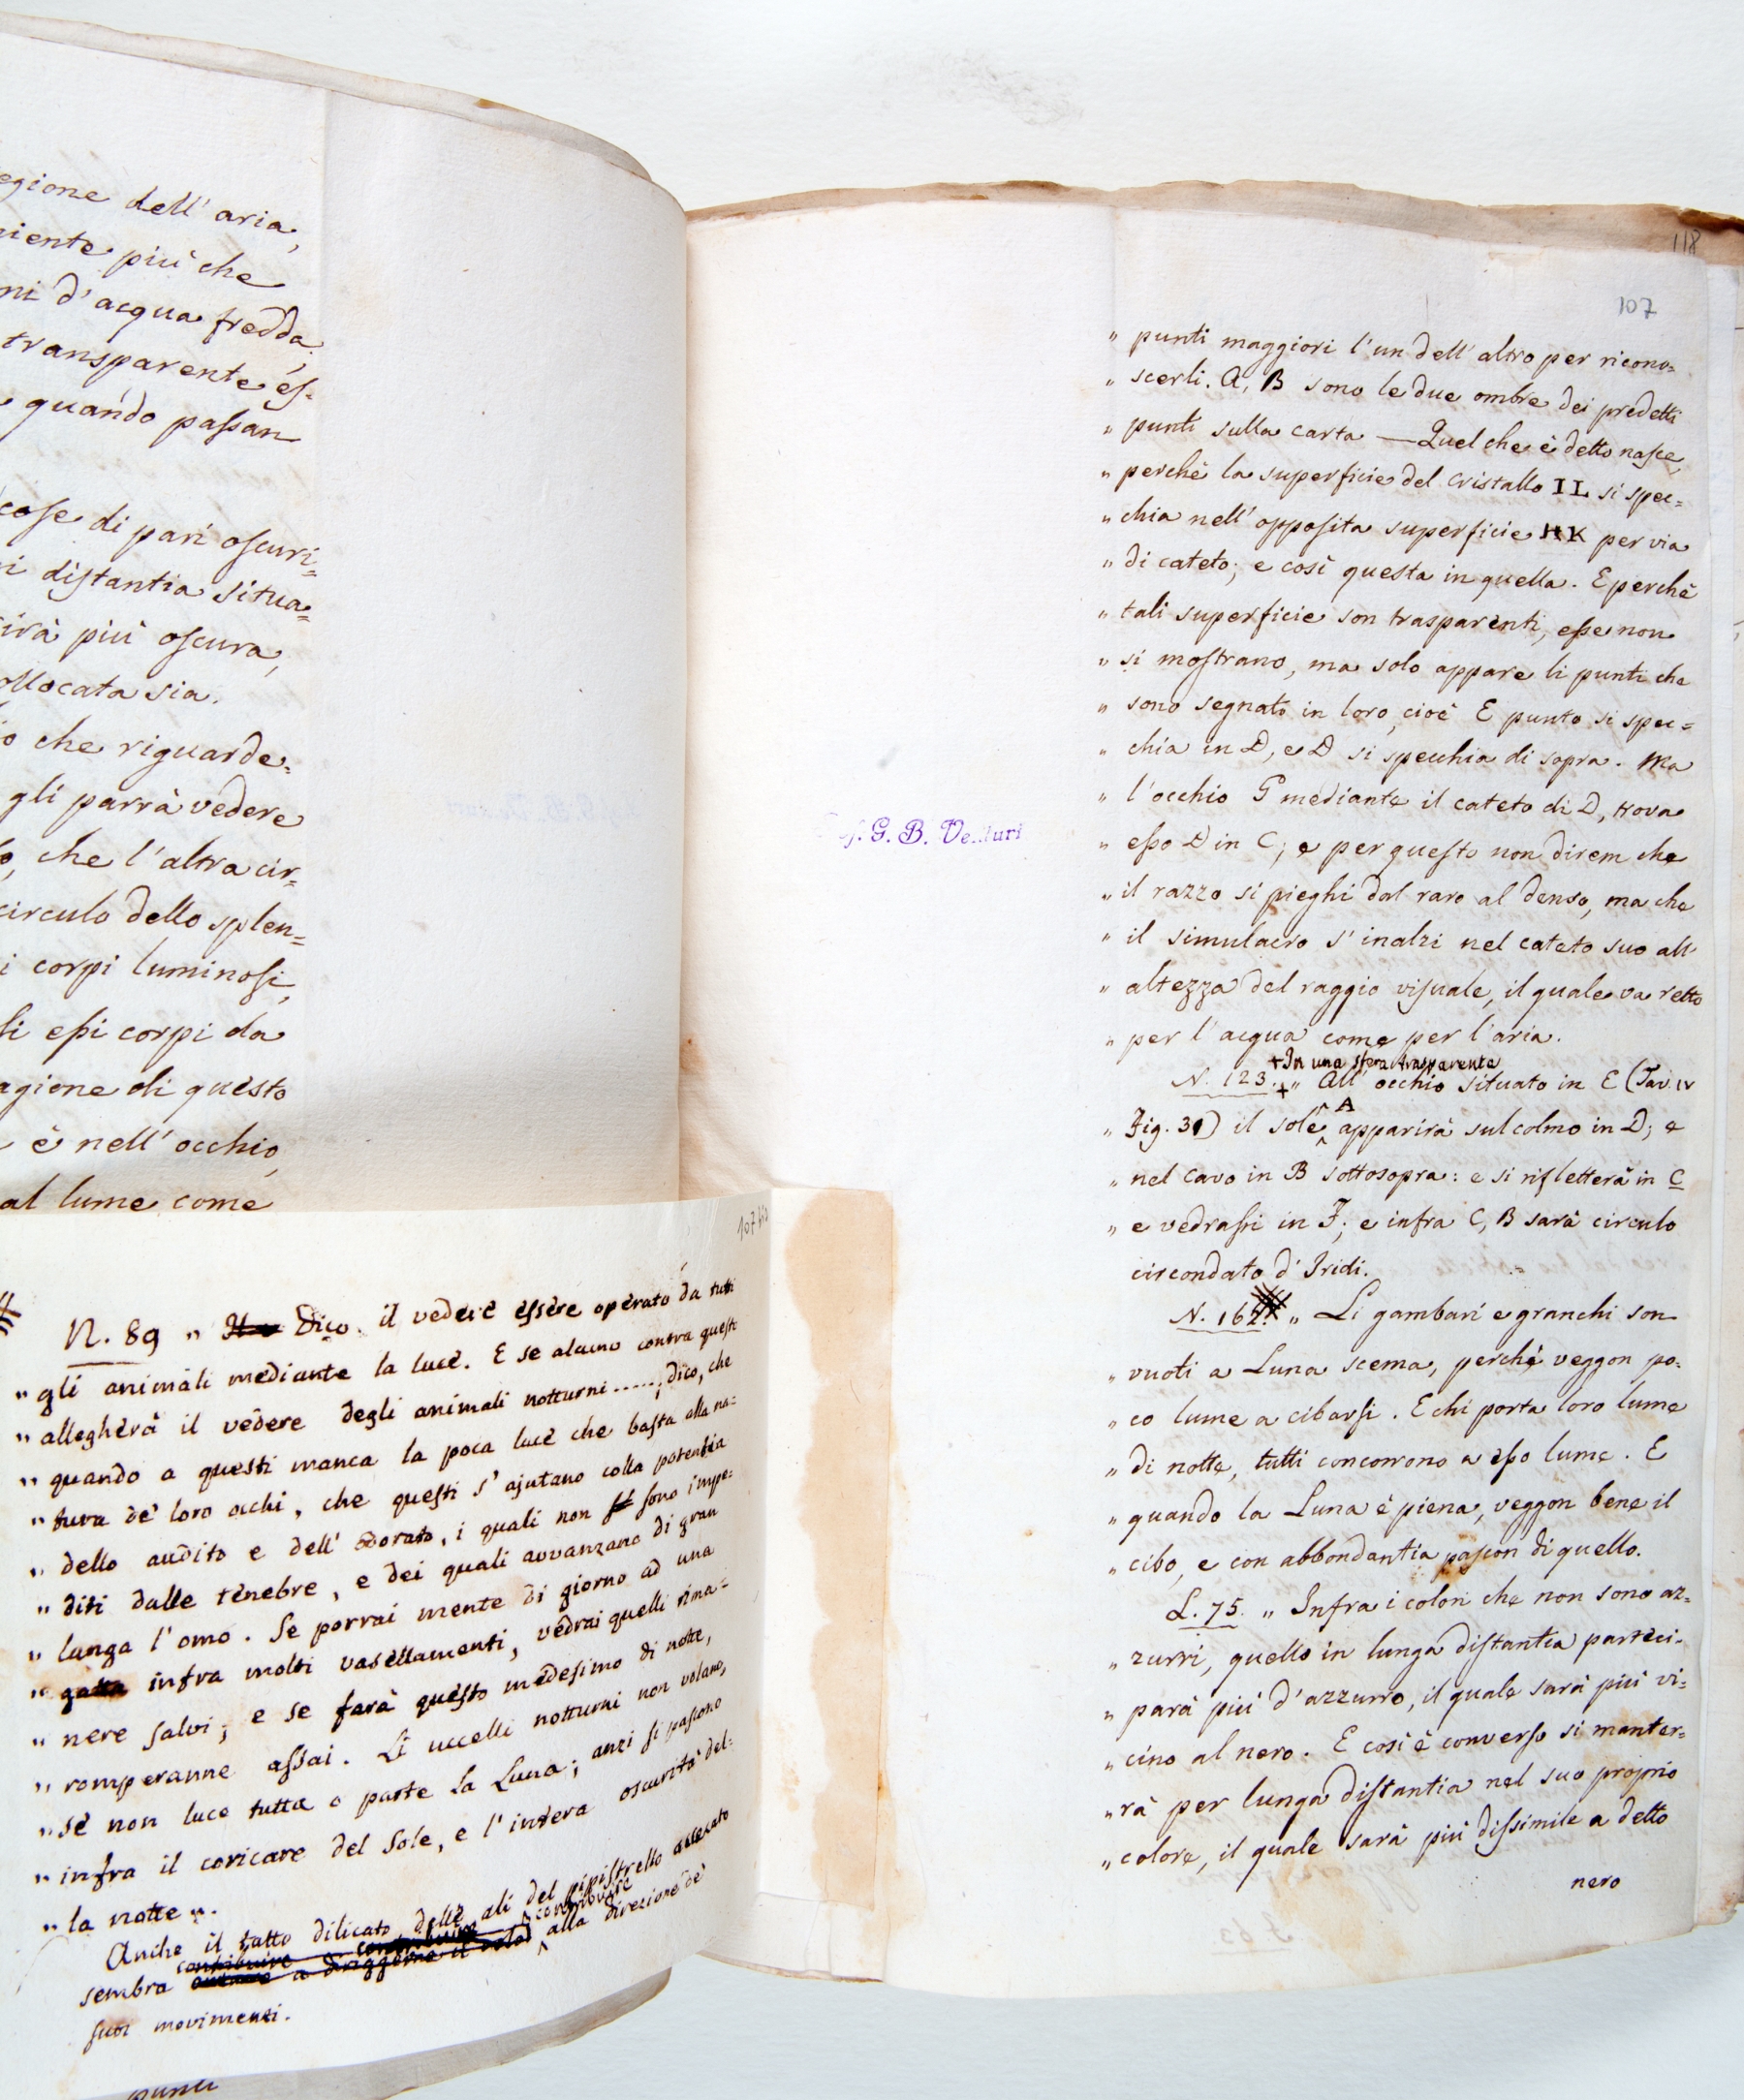 egione dell'aria,
niente più che
ni d'acqua fredda
transparente es=
quando passan
cose di pari oscuri=
i distantia situa=
irà più oscura,
ollocata sia.
o che riguarde=
gli parrà vedere
o, che l'altra cir=
circulo dello splen=
i corpi luminosi,
li essi corpi da
agione di questo
è nell'occhio,
al lume come
107 bis
N. 89 " Dico il vedere essere operato da tutti
" gli animali mediante la luce. E se alcuno contra questi
" allegherà il vedere degli animali notturni .....; dico, che
" quando a questi manca la poca luce che basta alla na=
" tura de' loro occhi, che questi s'ajutano colla potentia
" dello audito e dell' odorato, i quali non sono impe=
" diti dalle tenebre, e dei quali avvanzano di gran
" lunga l'omo. Se porrai mente di giorno ad una
" gatta infra molti vasellamenti, vedrai quelli rima=
" nere salvi; e se farà questo medesimo di notte,
" romperanne assai. Li uccelli notturni non volano,
" se non luce tutta o parte la Luna; anzi si pascono
" infra il coricare del Sole, e l'intera oscurità del=
" la notte ".
Anche il tatto dilicato delle ali del pipistrello accecato
sembra contribuire alla direzione de'
suoi movimenti.
punti
Prof. G. B. Venturi
118
107
" punti maggiori l'un dell'altro per ricono=
" scerli. A, B sono le due ombre dei predetti
" punti sulla carta — Quel che è detto nasce,
" perchè la superficie del cristallo IL si spec=
" chia nell'opposita superficie HK per via
" di cateto; e così questa in quella. E perchè
" tali superficie son trasparenti, esse non
" si mostrano, ma solo appare li punti che
" sono segnato in loro, cioè E punto si spec=
" chia in D, e D si specchia di sopra. Ma
" l'occhio G mediante il cateto di D, trova
" esso D in C; e per questo non direm che
" il razzo si pieghi dal raro al denso, ma che
" il simulacro s'inalzi nel cateto suo all'
" altezza del raggio visuale, il quale va retto
" per l'acqua come per l'aria.
+ In una sfera trasparente
N. 123. + " All' occhio situato in E (Tav. IV
" Fig. 31) il sole A apparirà sul colmo in D; e
" nel cavo in B sottosopra: e si rifletterà in C
" e vedrassi in F; e infra C, B sarà circulo
circondato d'Iridi.
N. 162. " Li gambari e granchi son
" vuoti a Luna scema, perchè veggon po=
" co lume a cibarsi. E chi porta loro lume
" di notte, tutti concorrono a esso lume. E
" quando la Luna è piena, veggon bene il
" cibo, e con abbondantia pascon di quello.
L. 75. " Infra i colori che non sono az=
" zurri, quello in lunga distantia parteci=
" parà più d'azzurro, il quale sarà più vi=
" cino al nero. E così è converso si manter=
" rà per lunga distantia nel suo proprio
" colore, il quale sarà più dissimile a detto
nero